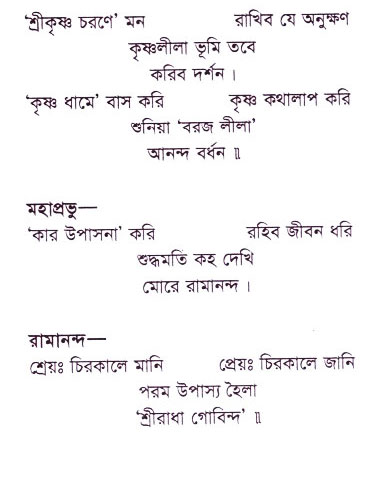 ‘শ্রীকৃষ্ণ চরণে’ মন রাখিব যে অনুক্ষণ
কৃষ্ণলীলা ভূমি তবে
করিব দর্শন ।
‘কৃষ্ণ ধামে’ বাস করি কৃষ্ণ কথালাপ করি
শুনিয়া ‘বরজ লীলা’
আনন্দ বর্ধন ॥
মহাপ্রভু—
‘কার উপাসনা’ করি রহিব জীবন ধরি
শুদ্ধমতি কহ দেখি
মোরে রামানন্দ ।
রামানন্দ—
শ্রেয়ঃ চিরকালে মানি প্রেয়ঃ চিরকালে জানি
পরম উপাস্য হৈলা
‘শ্রীরাধা গোবিন্দ’ ॥